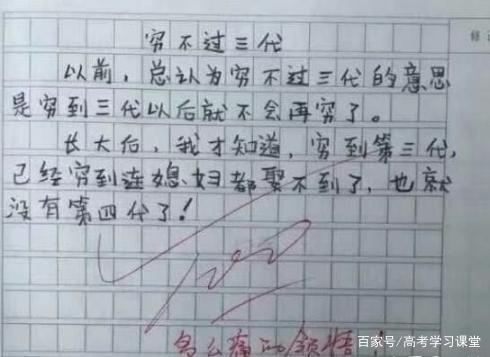 穷不过三代
以前，总认为穷不过三代的意思
是穷到三代以后就不会再穷了。
长大后，我才知道，穷到第三代，
已经穷到连媳妇都娶不到了，也就
没有第四代了！
100
多么痛的领悟
百家号/高考学习课堂